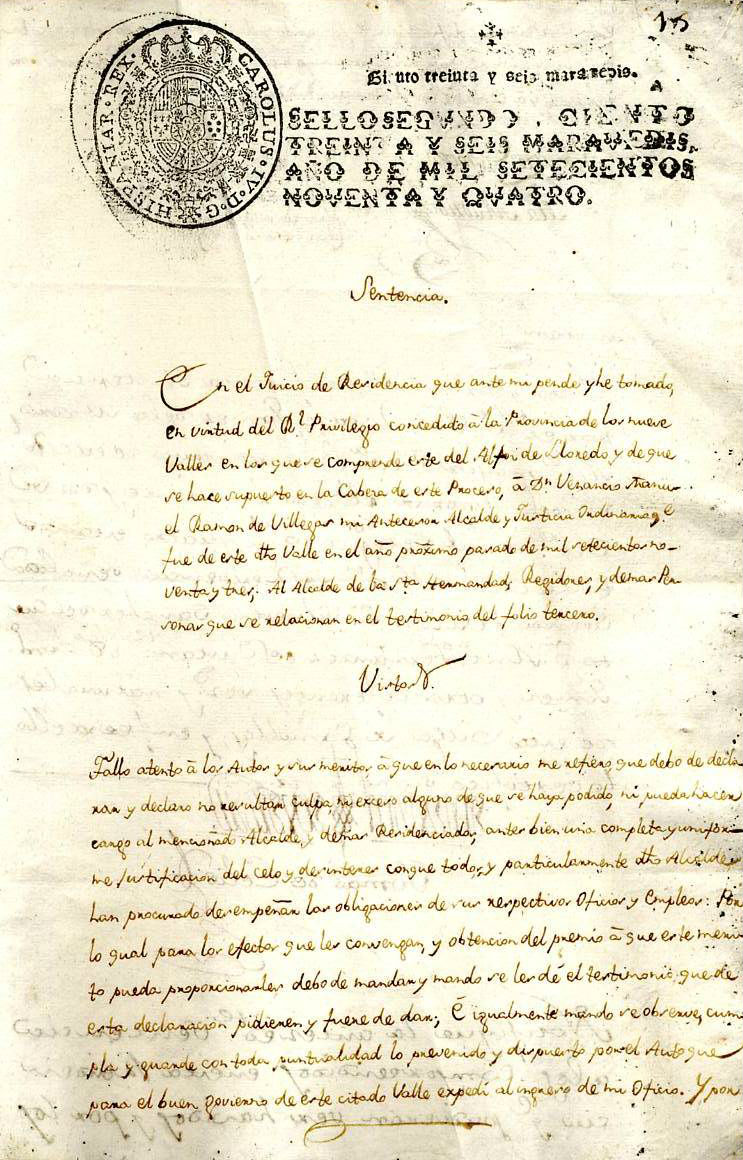 15
CAROLUS · IV · D · G · HISPANIAR · REX ·
Ciento treinta y seis maravedis.
SELLO SEGVNDO, CIENTO
TREINTA Y SEIS MARAVEDIS,
AÑO DE MIL SETECIENTOS
NOVENTA Y QVATRO.
Sentencia.
En el Juicio de Residencia que ante mi pende y he tomado,
en virtud del Rl. Privilegio concedido à la Provincia de los nueve
Valles en los que se comprende este del Alfoz de Lloredo y de que
se hace supuesto en la Cabeza de este Proceso, à Dn. Venancio Manu-
el Ramon de Villegas mi Antecesor Alcalde y Justicia Ordinaria qe.
fue de este dho Valle en el año proximo pasado de mil setecientos no-
venta y tres; Al Alcalde de la Sta Hermandad, Regidores, y demas Per
sonas que se relacionan en el testimonio del folio tercero.
Vistos
Fallo atento à los Autos y sus meritos, à que en lo necesario me refiero, que debo de decla
rar y declaro no resultar culpa, ni exceso alguno de que se haya podido, ni pueda hacer
cargo al mencionado Alcalde, y demas Residenciados, antes bien una completa y unifor
me justificacion del celo y desinteres con que todos, y particularmente dho Alcalde
han procurado desempeñar las obligaciones de sus respectivos Oficios y Empleos: Por
lo qual para los efectos que les convengan, y obtencion del premio à que este meri
to pueda proporcionarles debo de mandar y mando se les dé el testimonio que de
esta declaracion pidieren y fuere de dar; E igualmente mando se observe, cum
pla y guarde con toda puntualidad lo prevenido y dispuesto por el Auto que
para el buen govierno de este citado Valle expedi al ingreso de mi Oficio. Y por